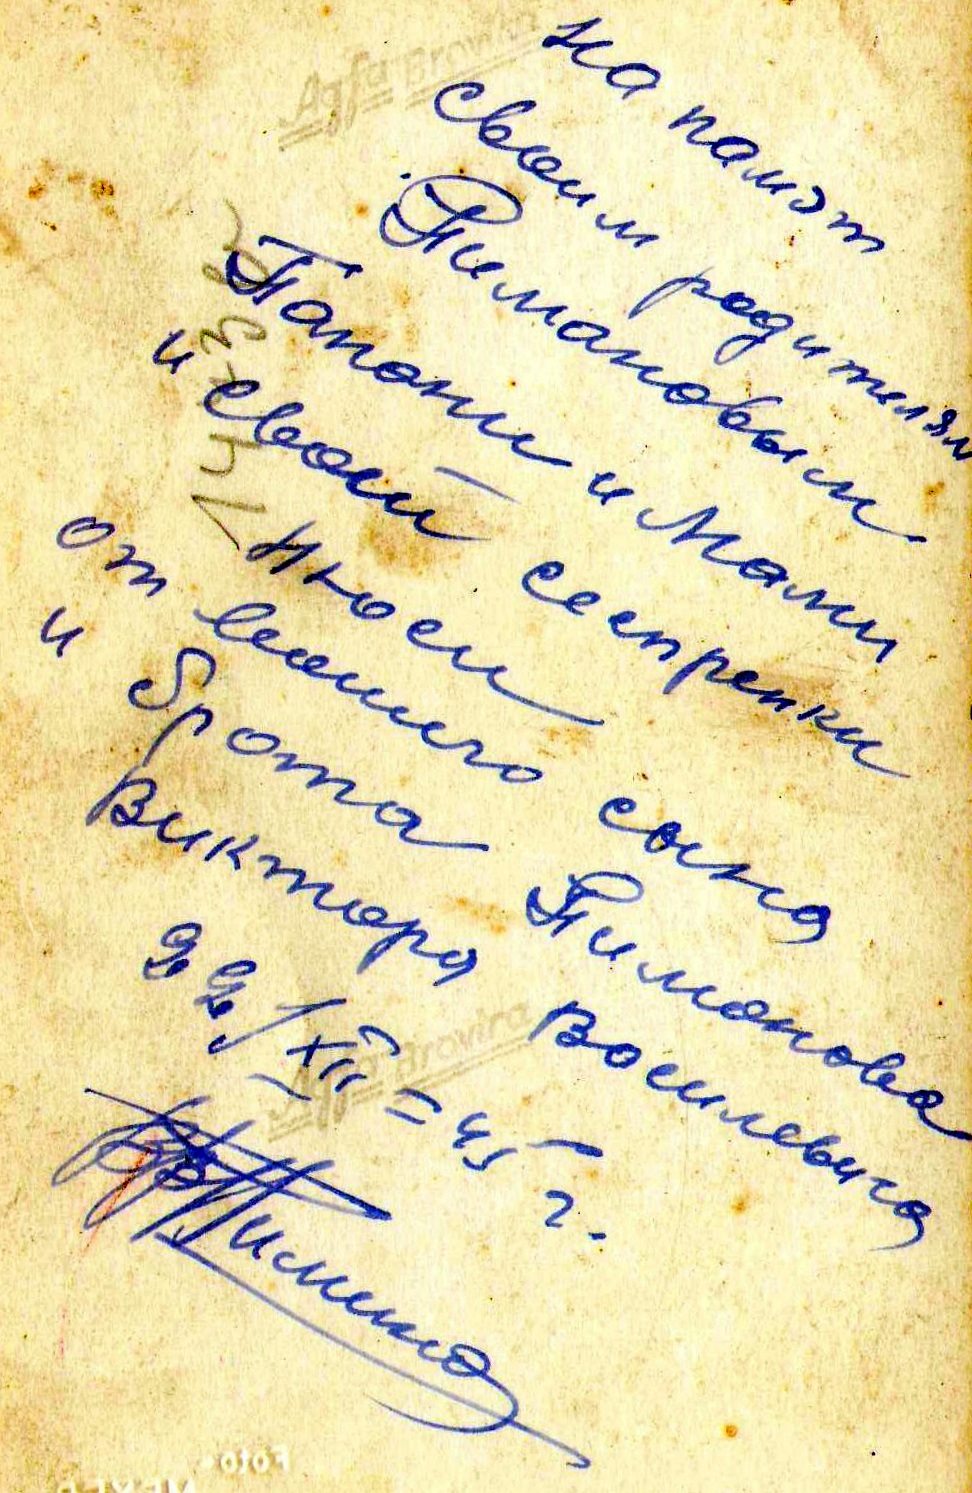 на памэт
своим родителям
Тимановым.
Папони и Мами
и своей сестренки
Нюси
от вашиго сына
и брота Тиманова
Виктора Восилевича
22/XII=45 г.
Agfa Brovira
Agfa Brovira
Foto